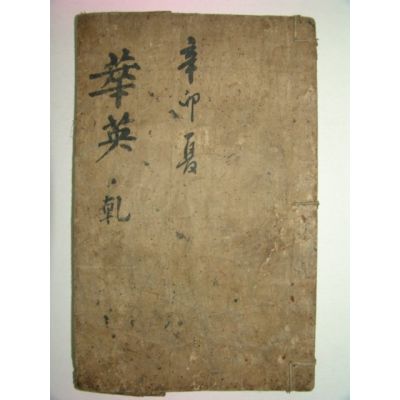 辛卯夏
華英 乹